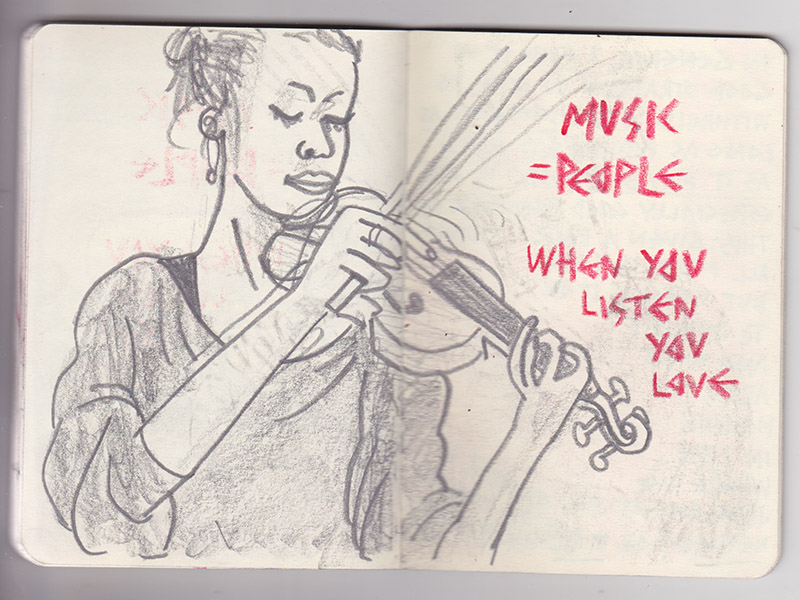 MUSIC
=PEOPLE
WHEN YOU
LISTEN
YOU
LOVE